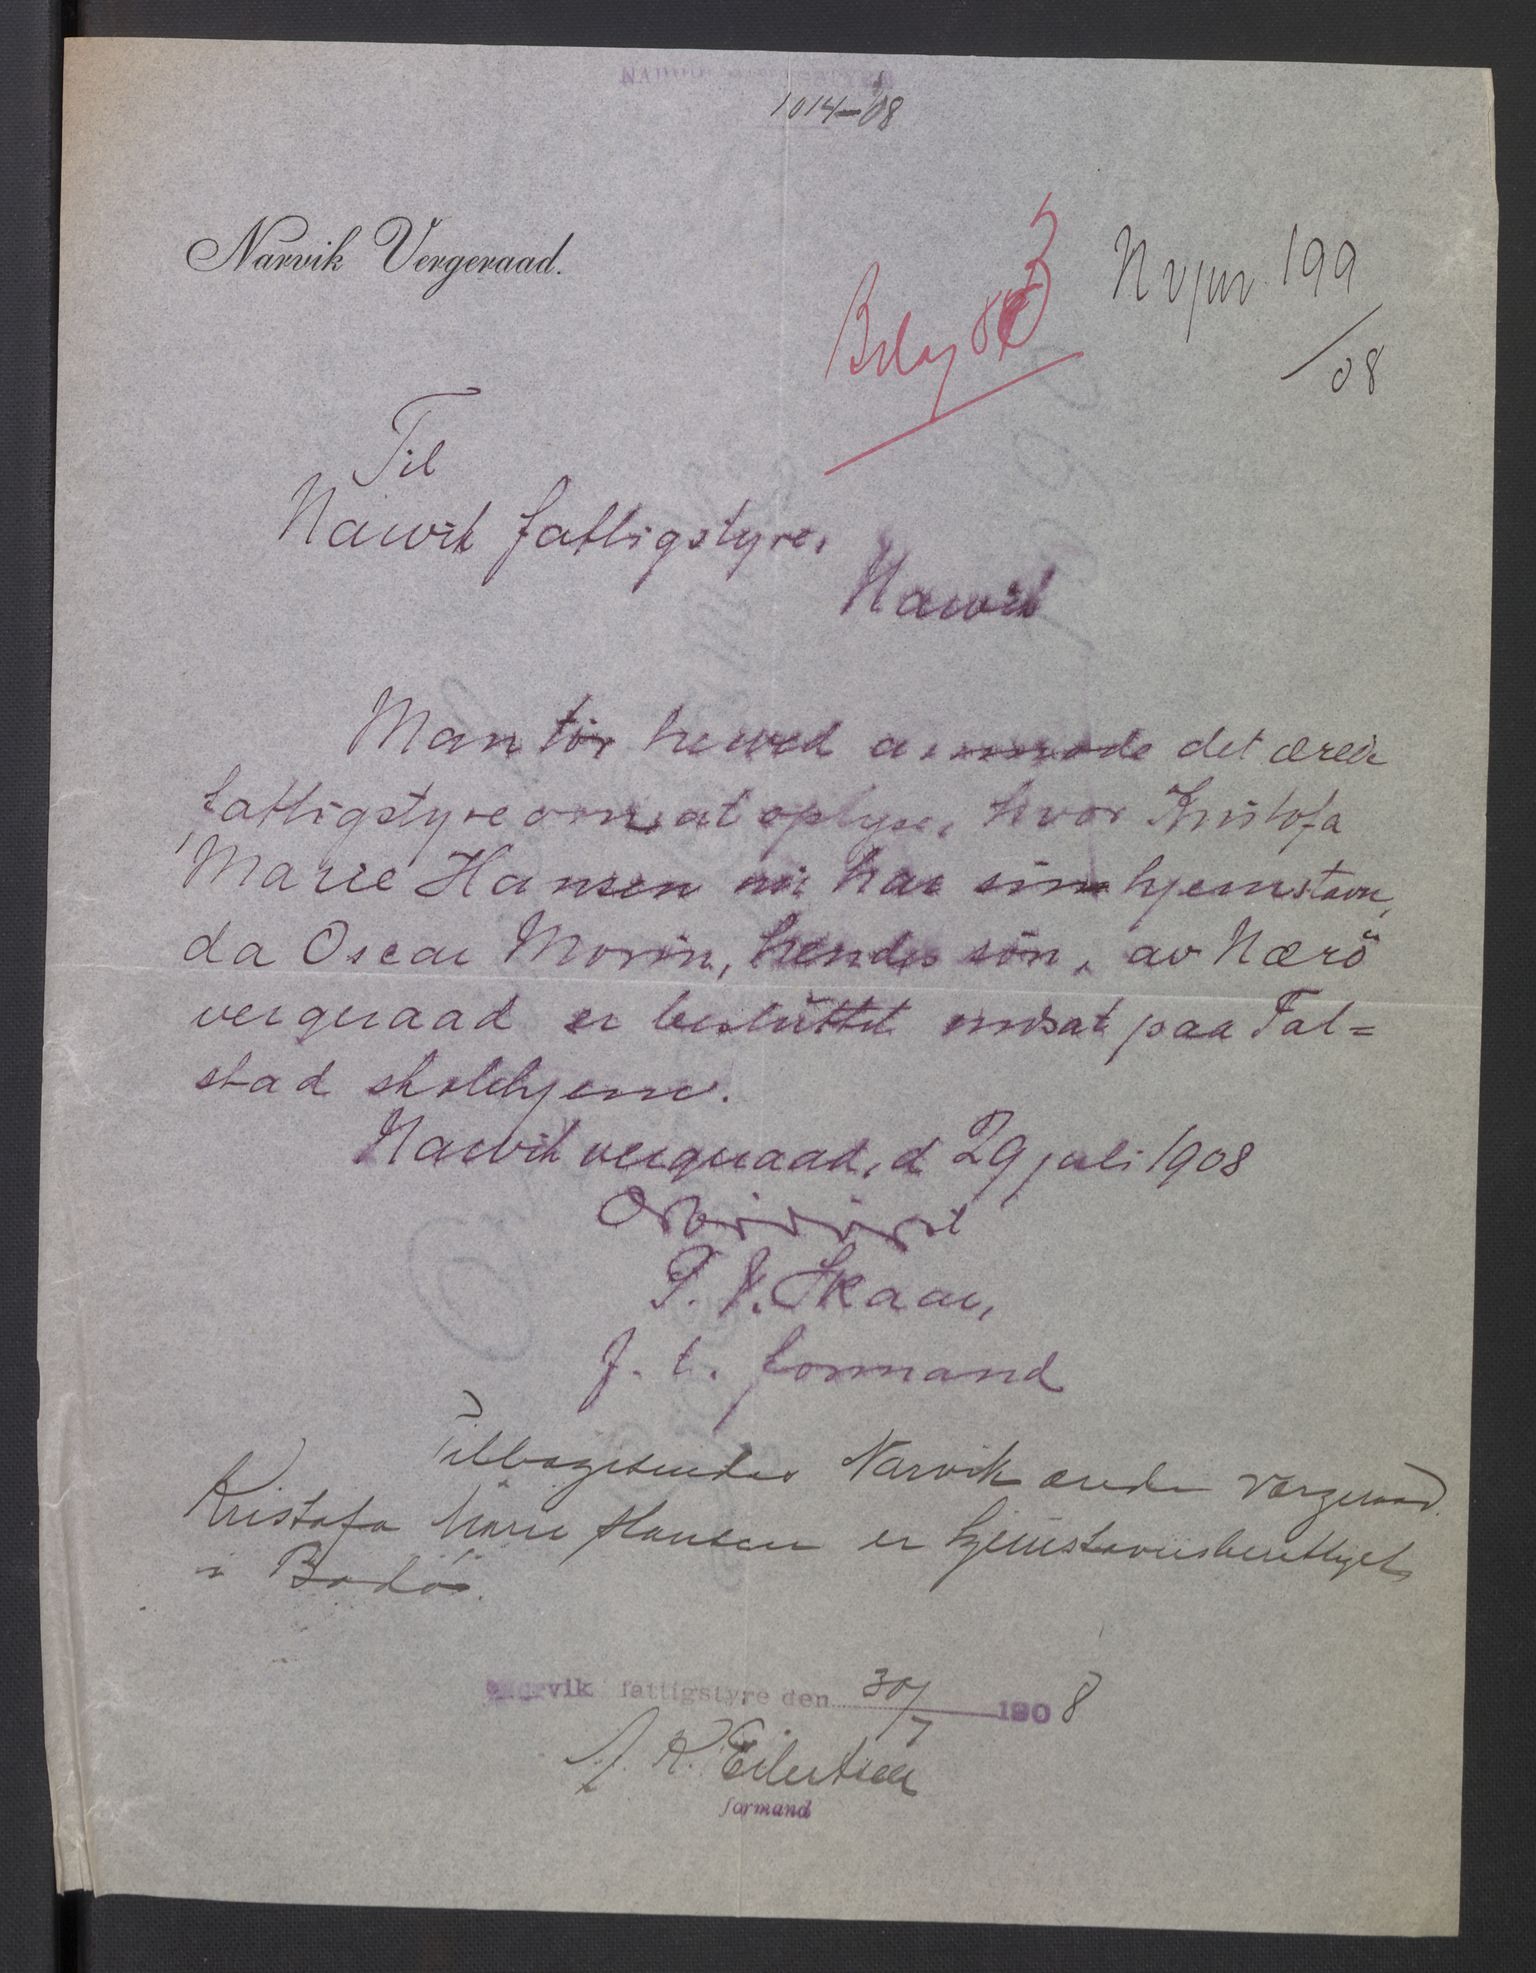 1014-08
Narvik Vergeraad.
Bilag
N v jur 199
/08
Til
Narvik fattigstyre,
Narvik
Man tør herved anmode det ærede
fattigstyre om at oplyse, hvor Kristofa
Marie Hansen nu har sin hjemstavn,
da Oscar Morin, hendes søn, av Nærö
vergeraad er besluttet indsat paa Fal=
stad skolehjem.
Narvik vergeraad, d 29 juli 1908
Ærbødigst
P. Skaar,
f. t. formand
Tilbagesendes Narvik ærede Vergeraad.
Kristofa Marie Hansen er hjemstavnsberettiget
i Bodø.
Narvik fattigstyre den 30/7 1908
K. Eilertsen
formand